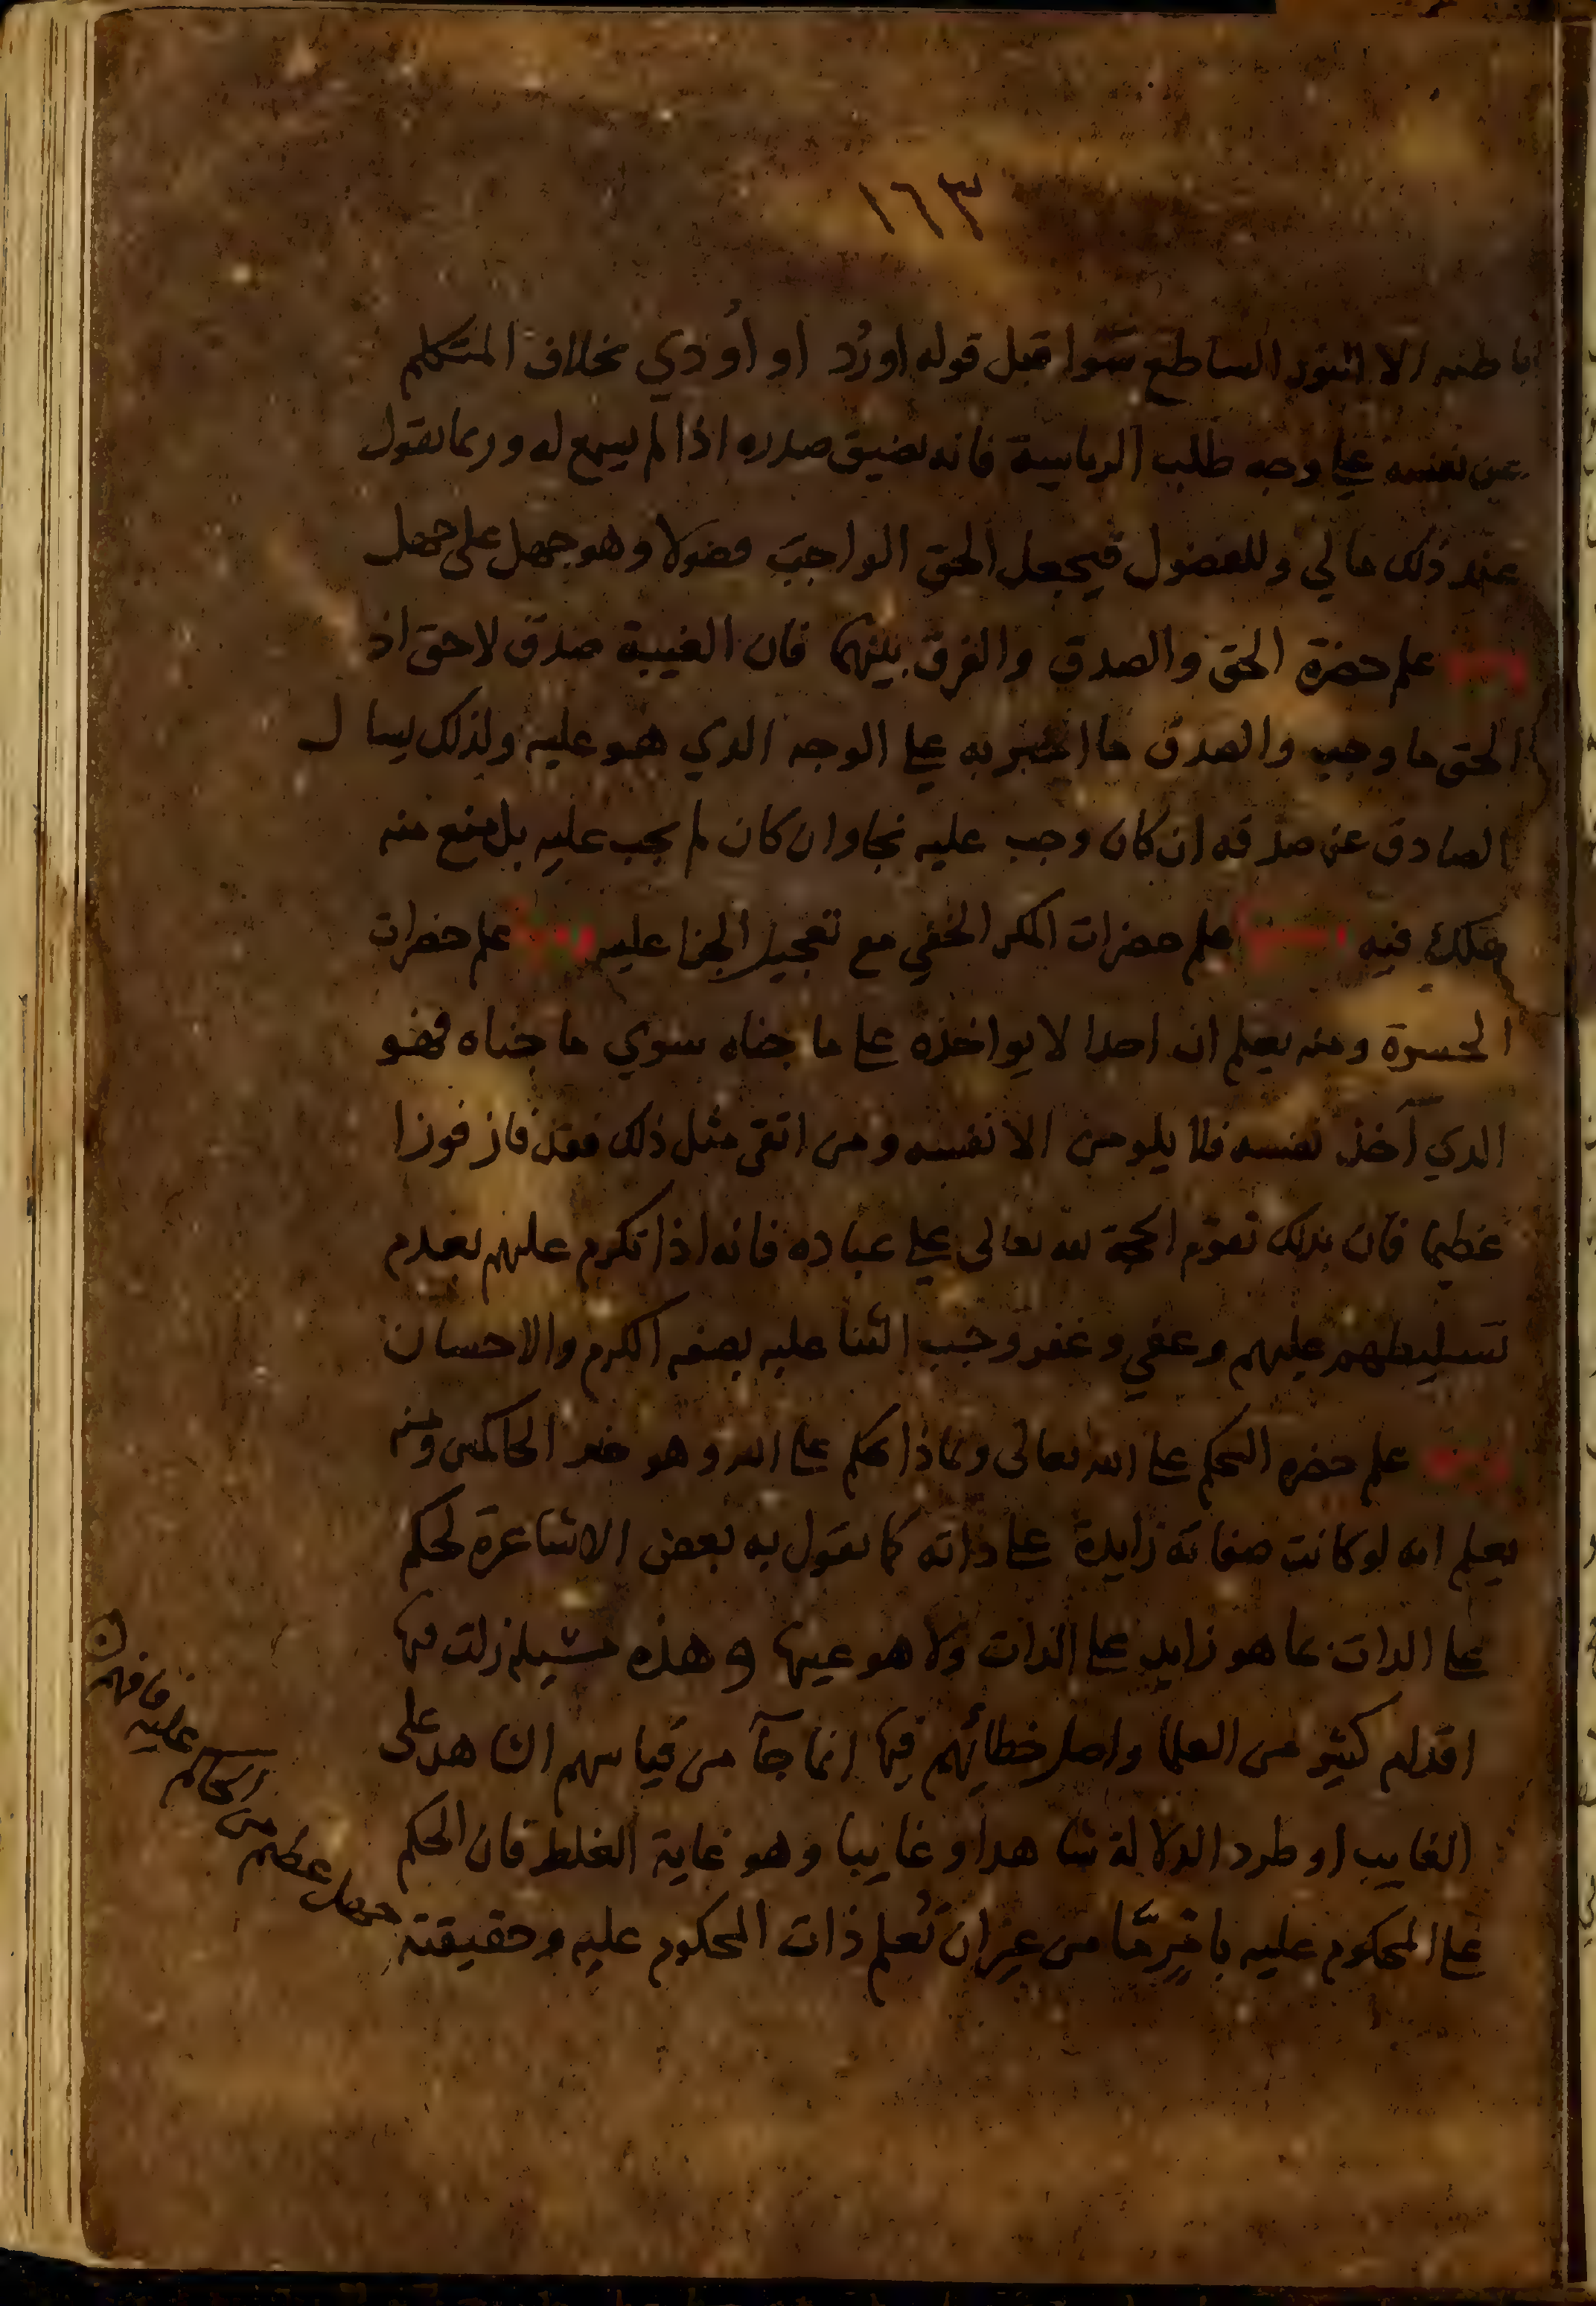 ١٦٣
باطنه الا النور الساطع سوا قبل قوله اورُد او أُودي بخلاف المتكلم
عن نفسه على وجه طلب الرياسة فانه يضيق صدره اذا لم يسمع له وربما يقول
عند ذلك مالي وللفضول فيجعل الحق الواجب فضولا وهو جهل على جهل
علم حضرة الحق والصدق والفرق بينهما فان الغيبة صدق لا حق اذ
الحق ما وجب والصدق ما اخبر به على الوجه الدي هو عليه ولذلك يسال
الصادق عن صدقه ان كان وجب عليه نجا وان كان لم يجب عليه بل منع منه
هلك فيه علم حضرات المكر الخفي مع تعجيل الجزا عليه علم حضرات
الحسرة ومنه يعلم ان احدا لا يواخذه على ما جناه سوي ما جناه فهو
الدي آخذ نفسه فلا يلومن الا نفسه ومن اتقى مثل ذلك فقد فاز فوزا
عظيما فان بذلك تقوم الحجة لله تعالى على عباده فانه اذا تكرم عليهم بعدم
تسليطهم عليهم وعفي وغفر وجب الثنا عليه بصفه الكرم والاحسان
علم حضره الحكم على الله تعالى وبماذا يحكم على الله وهو خير الحاكمين ومنه
يعلم انه لو كانت صفاته زايدة على داته كما يقول به بعض الاشاعرة لحكم
على الدات بما هو زايد على الذات ولا هو عينها وهذه مسيلة زلت فيها
اقدام كثير من العلما واصل خطائهم فيها انما جآ من قياسهم الشاهد على
الغايب او طرد الدلالة شاهدا وغايبا وهو غاية الغلط فان الحكم
على المحكوم عليه بامرٍ مّا من غير ان تُعلم ذات المحكوم عليه وحقيقته
جهل عظيم من الحاكم عليه فافهم